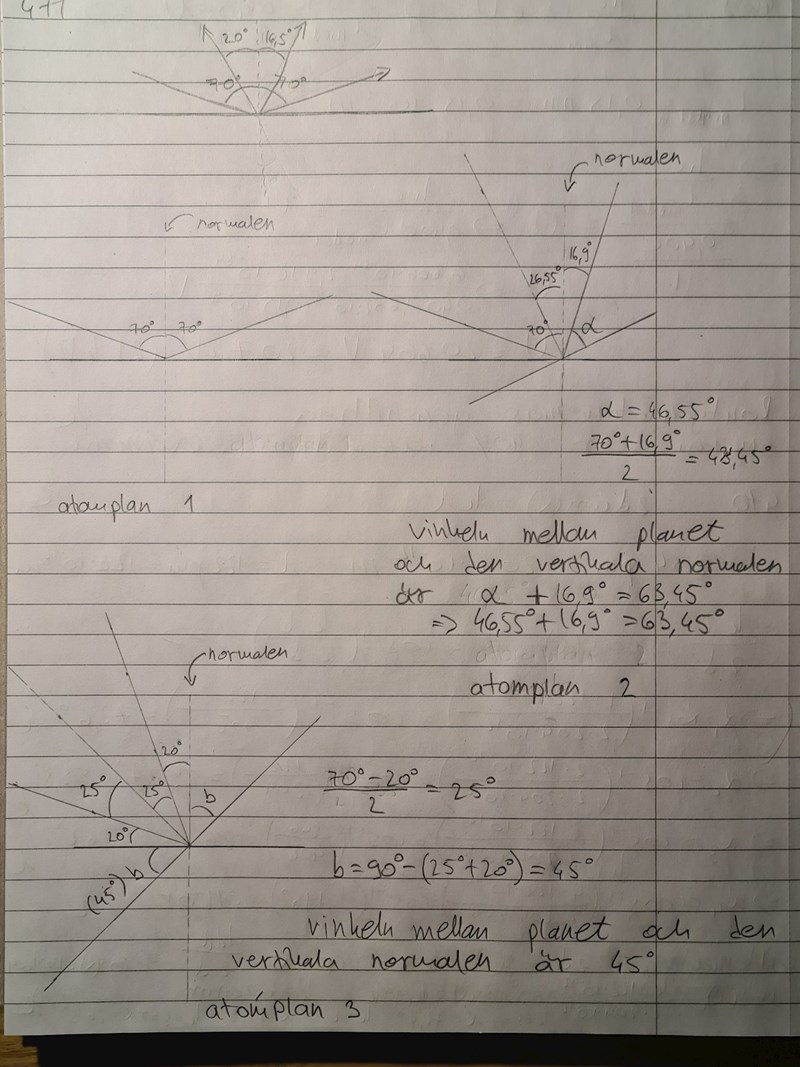 4+1
20° 16,5°
70° 70°
normalen
70° 70°
atomplan 1
normalen
16,9°
26,55°
70° α
α = 46,55°
70°+16,9°
2
= 43,45°
vinkeln mellan planet
och den vertikala normalen
är α + 16,9° = 63,45°
=> 46,55° + 16,9° = 63,45°
atomplan 2
normalen
20°
25° 25° b
20°
(45°) b
70° - 20°
2
= 25°
b = 90° - (25° + 20°) = 45°
vinkeln mellan planet och den
vertikala normalen är 45°
atomplan 3